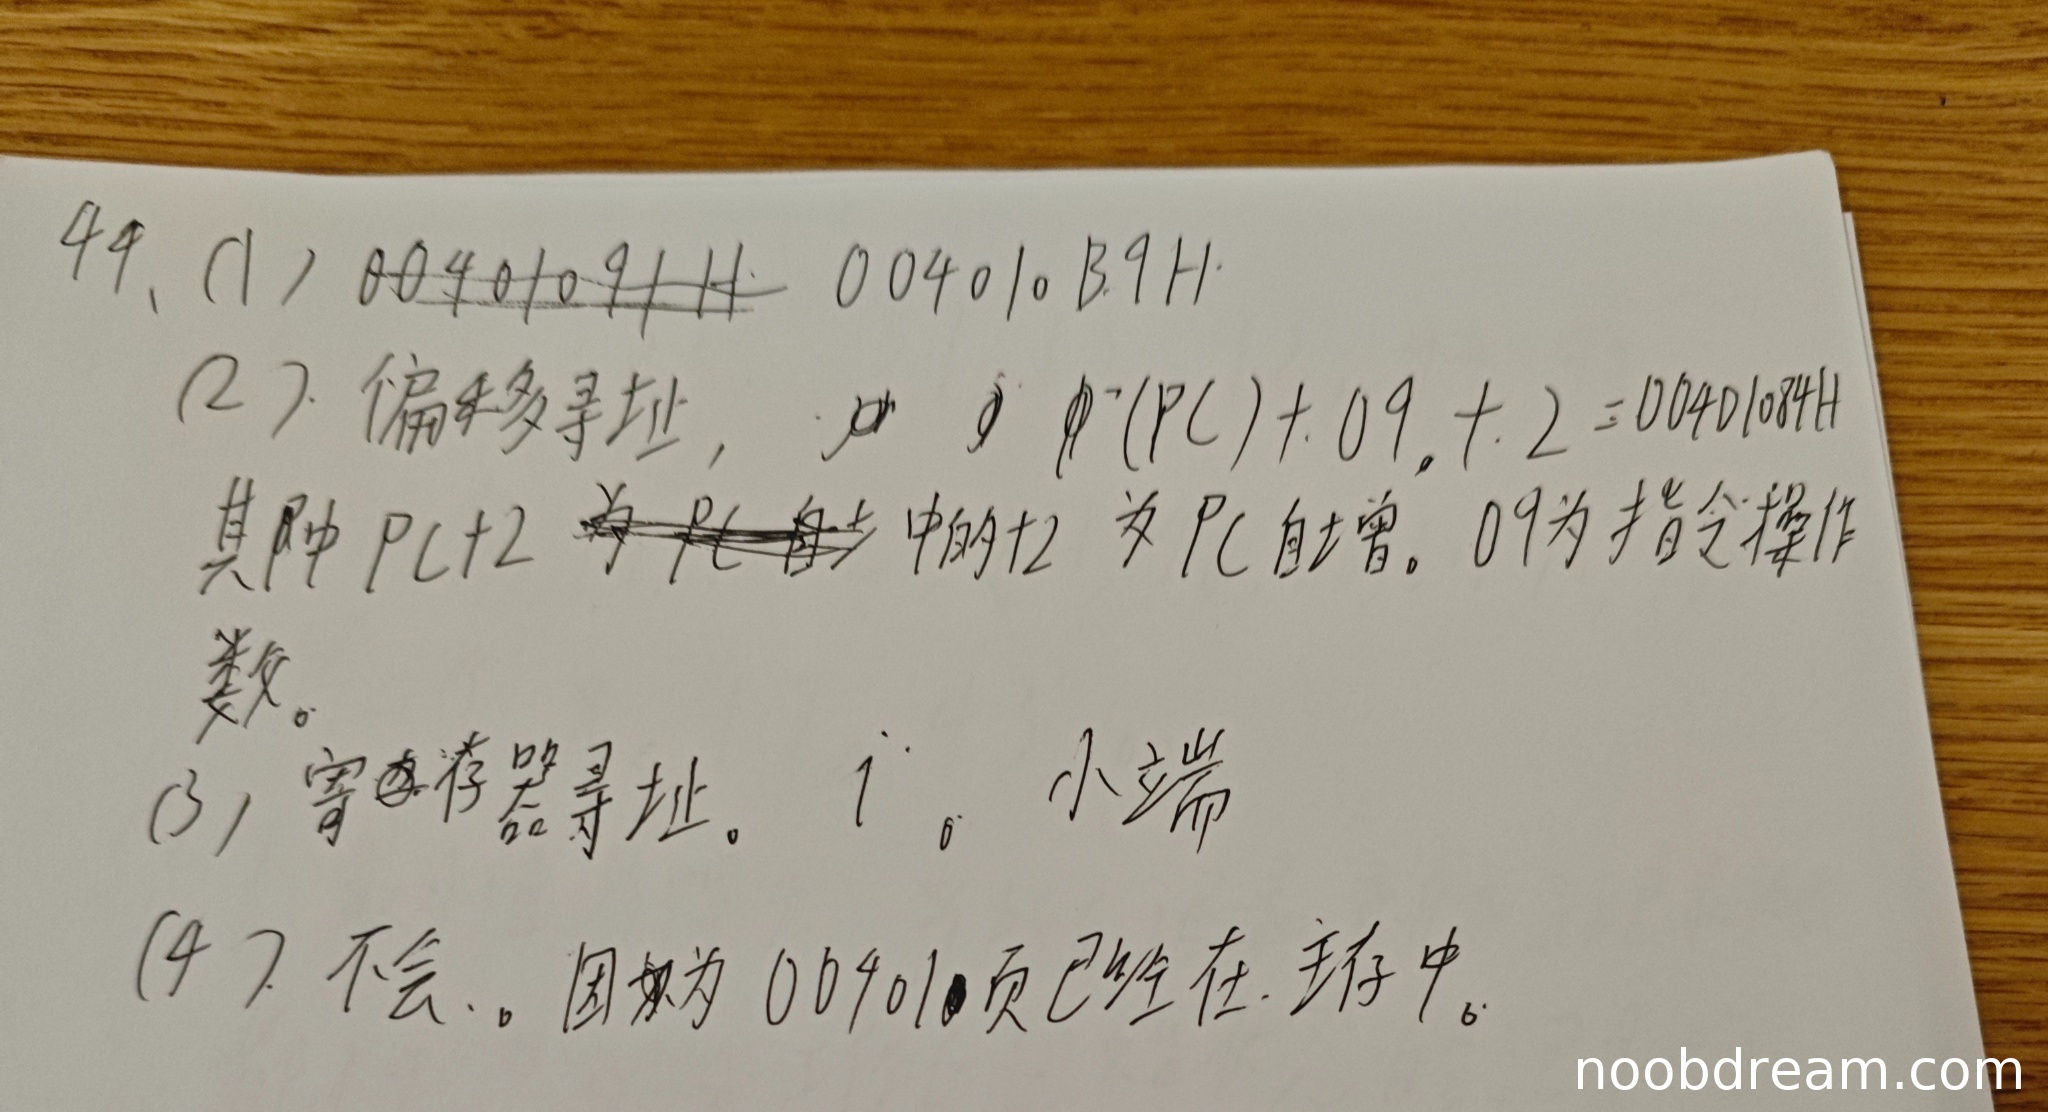 44、(1) 00401091H 004010B9H
(2). 偏移寻址, (PC)+09.+2=00401084H
其中PC+2 为PC自 中的+2为PC自增。09为指令操作
数。
(3) 寄存器寻址。 i。 小端
(4). 不会。因为00401页已经在主存中。
noobdream.com